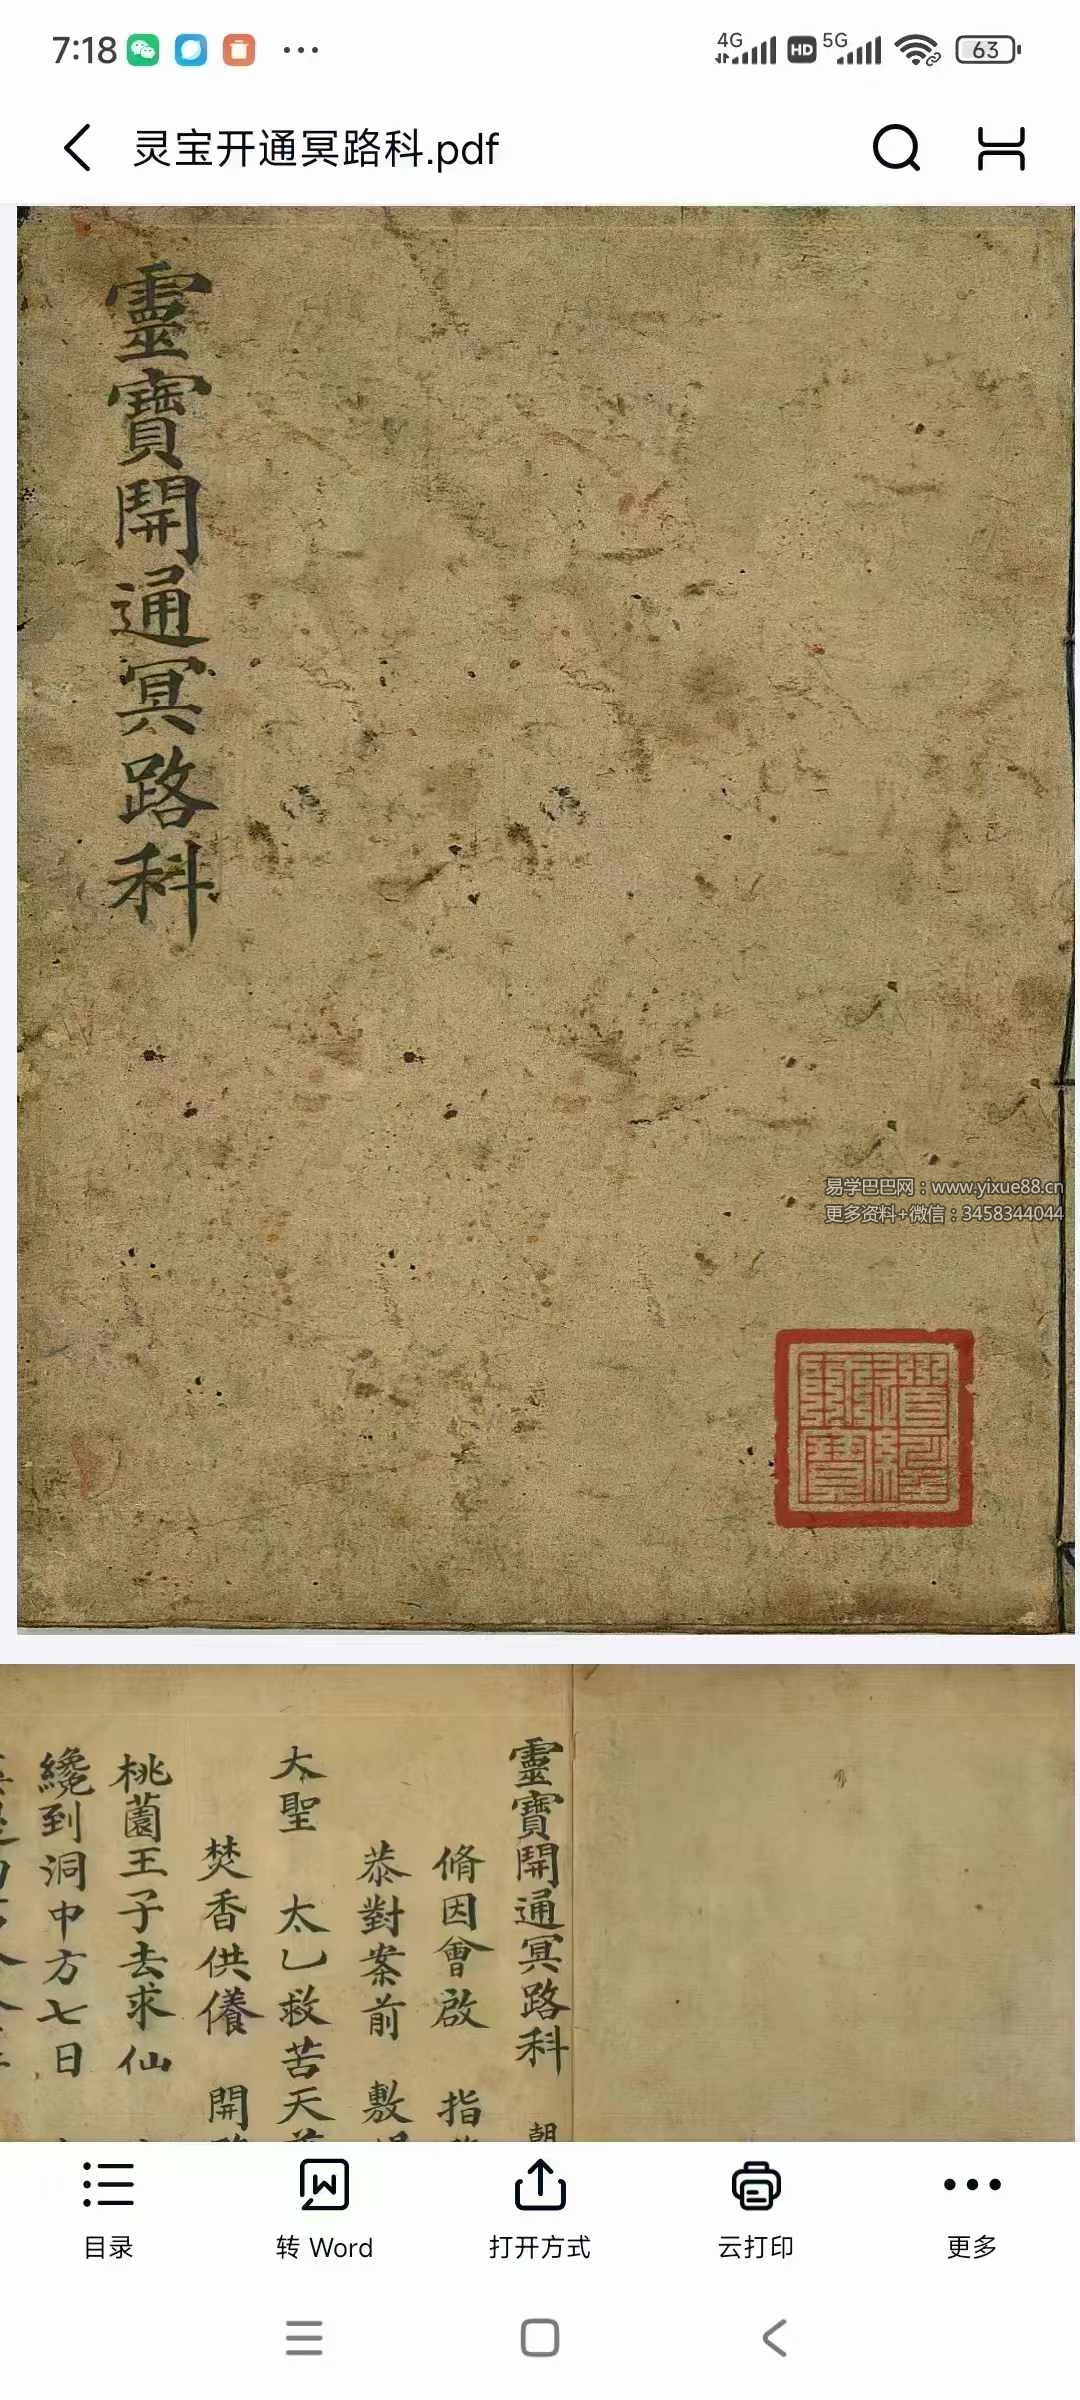 7:18
4G HD 5G 63
灵宝开通冥路科.pdf
靈寶開通冥路科
易学巴巴网：www.yixue88.cn
更多资料+微信：3458344044
靈寶開通冥路科
脩因會啟 指
恭對案前 敷
大聖 太乙救苦天
焚香供養 開
桃薗王子去求仙
纔到洞中方七日
目录
转 Word
打开方式
云打印
更多